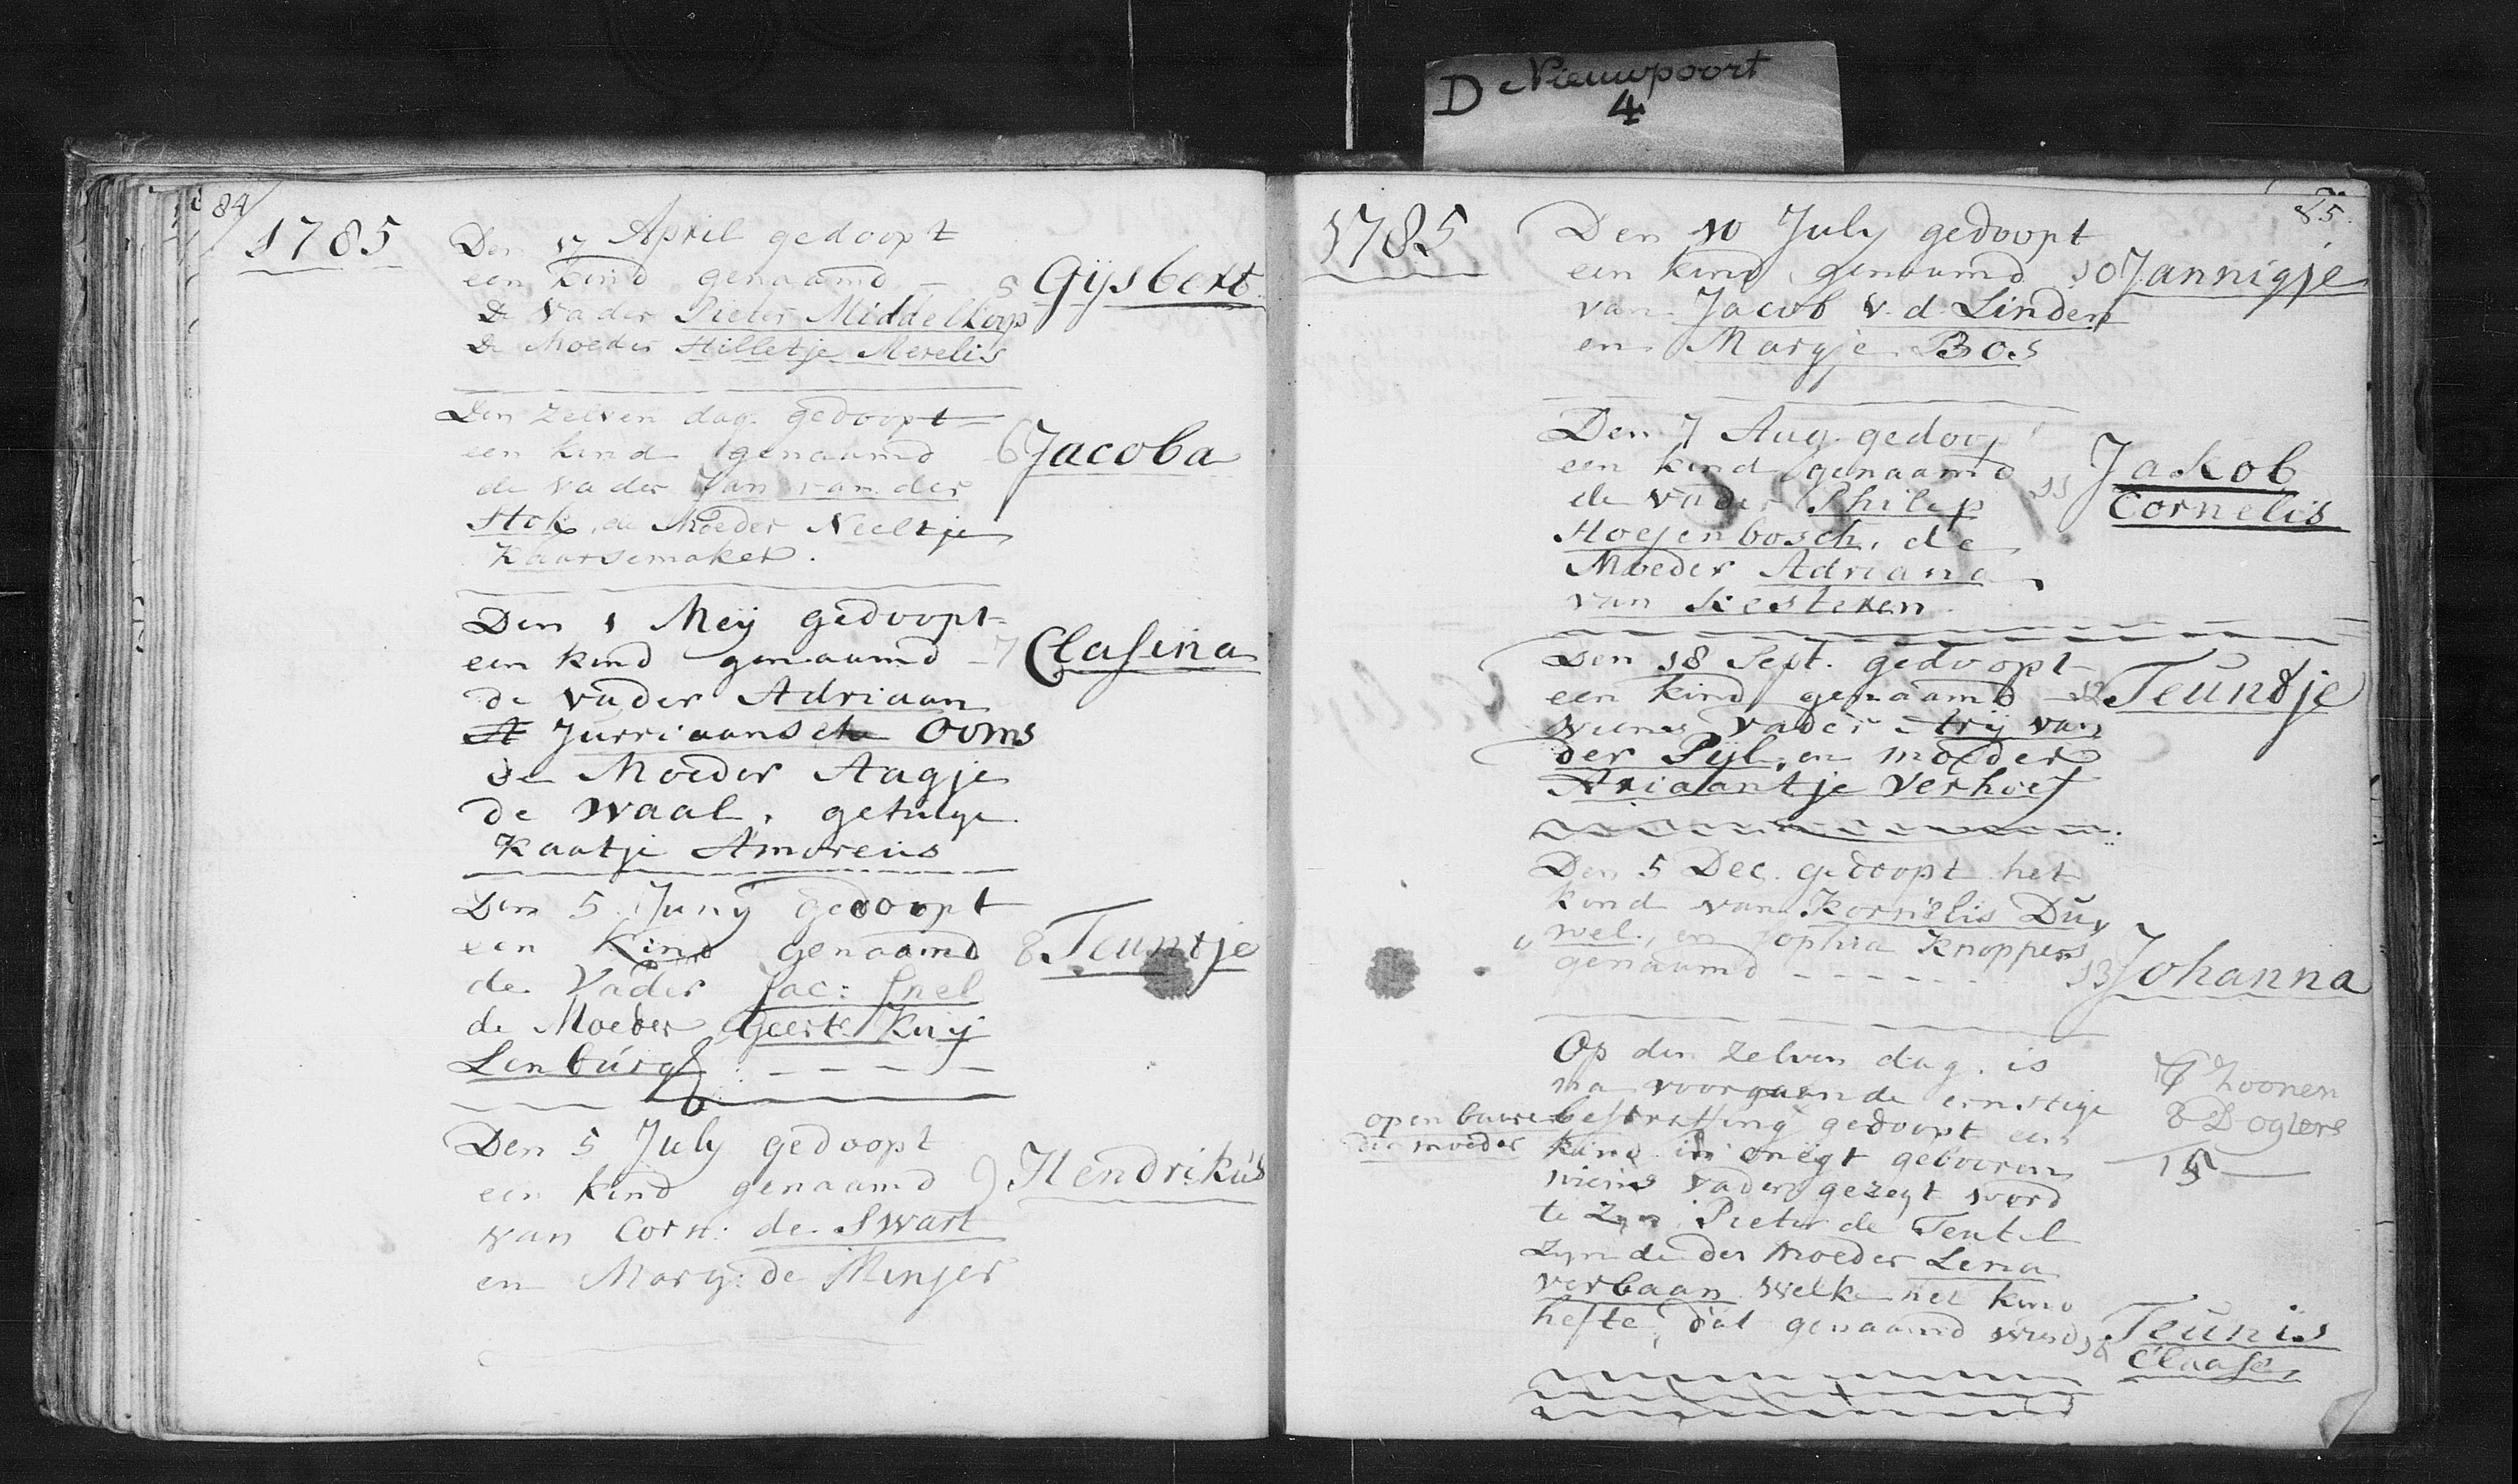 D Nieuwpoort
4
84
1785
Den 17 April gedoopt
een kind genaamd - 5 Gijsbert
De Vader Pieter Middelkoop
De Moeder Hilletje Merelis
Den zelven dag gedoopt
een kind genaamd 6 Jacoba
de vader Jan van der
Stok, de Moeder Neeltje
Kaarsemaker.
Den 1 Meij gedoopt
een kind genaamd - 7 Clasina
de vader Adriaan
Jurriaanse Ooms
de Moeder Aagje
de Waal, getuige
Kaatje Amoreus
Den 5 Junij gedoopt
een Kind genaamd 8 Teuntje
de Vader Jac: Snel
de Moeder Geert Kuij
Lenburg
Den 5 July gedoopt
een kind genaamd 9 Hendrikus
van Corn: de Swart
en Marg: de Minjer
85.
1785
Den 10 July gedoopt
een kind genaamd 10 Jannigje
van Jacob v. d. Linden
en Margje Bos
Den 7 Aug. gedoop
een kind genaamd 11 Jakob
Cornelis
de vader Philip
Hoejenbosch, de
Moeder Adriana
van Kesteren.
Den 18 Sept. gedoopt
een kind genaamd 12 Teuntje
wiens vader Arij van
der Pijl, en moeder
Ariaantje Verhoef
Den 5 Dec. gedoopt het
kind van Kornelis Duy
wel, en Sophia Knoppers
genaamd - - - - - 13 Johanna
Op den zelven dag is
na voorgaande ernstige
openbaare bestraffing gedoopt een
der moeder
kind in onegt gebooren
wiens vader gezegt word
te zyn Pieter de Tentel
zynde der moeder Lena
verbaan welke het kind
hefte, dat genaamd wierd 14 Teunis
Claase
7 Zoonen
8 Dogters
15